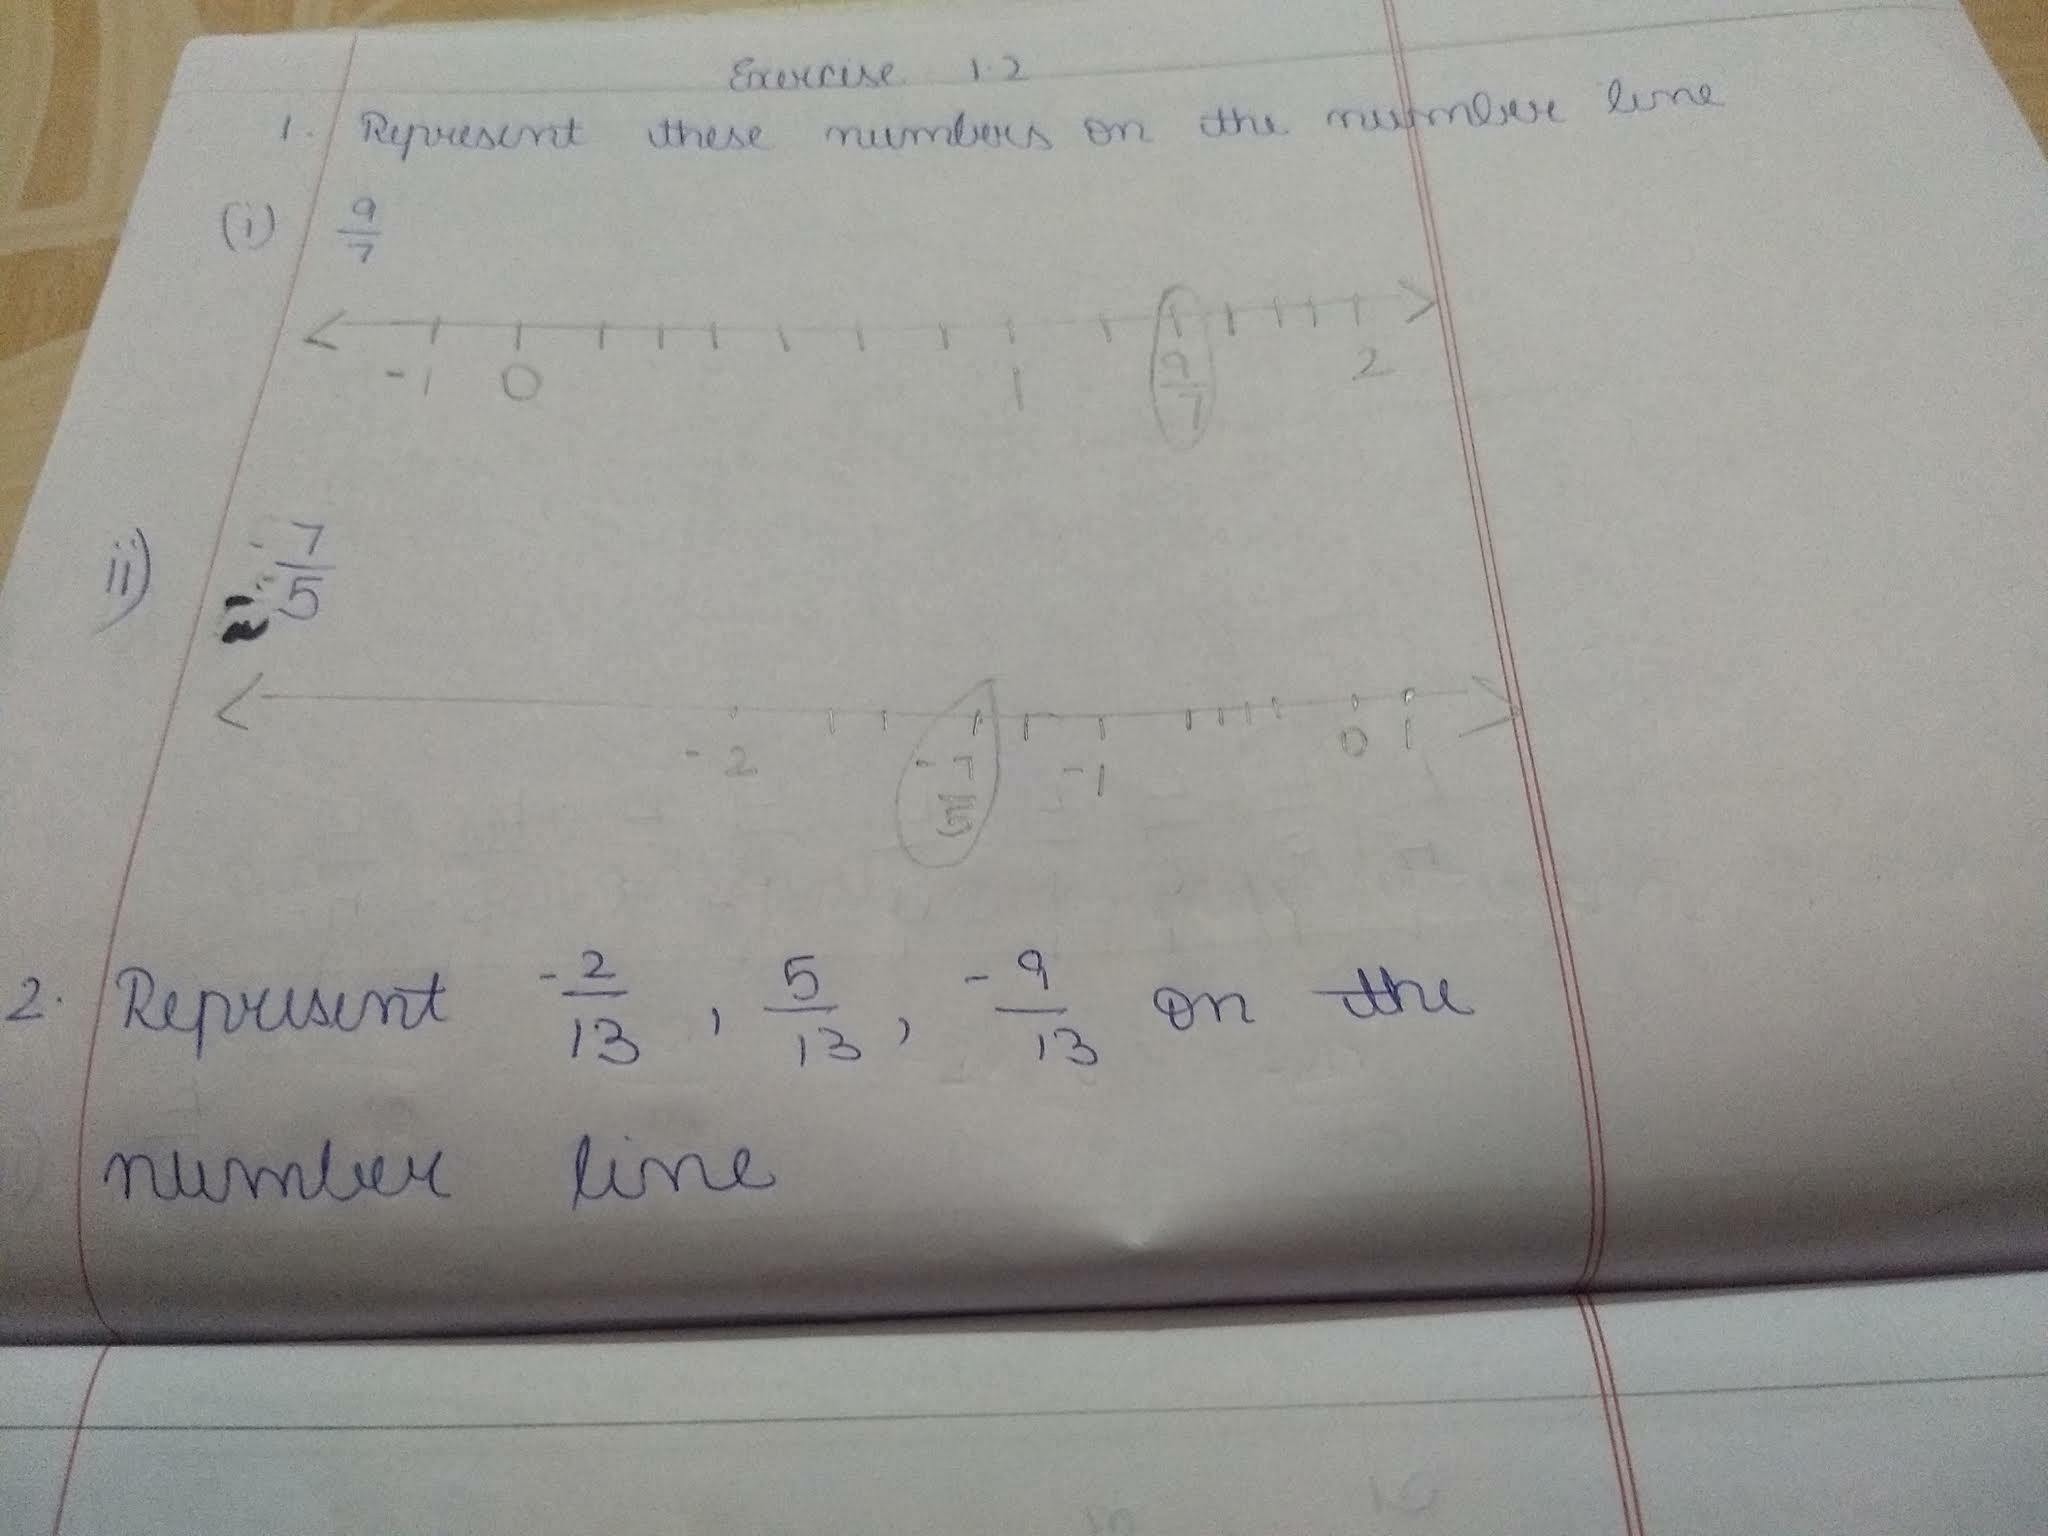 Exercise 1.2
1. Represent these numbers on the number line
(i) 9/7
-1 0 1 9/7 2
ii) -7/5
-2 -7/5 -1 0 1
2. Represent -2/13, 5/13, -9/13 on the
number line